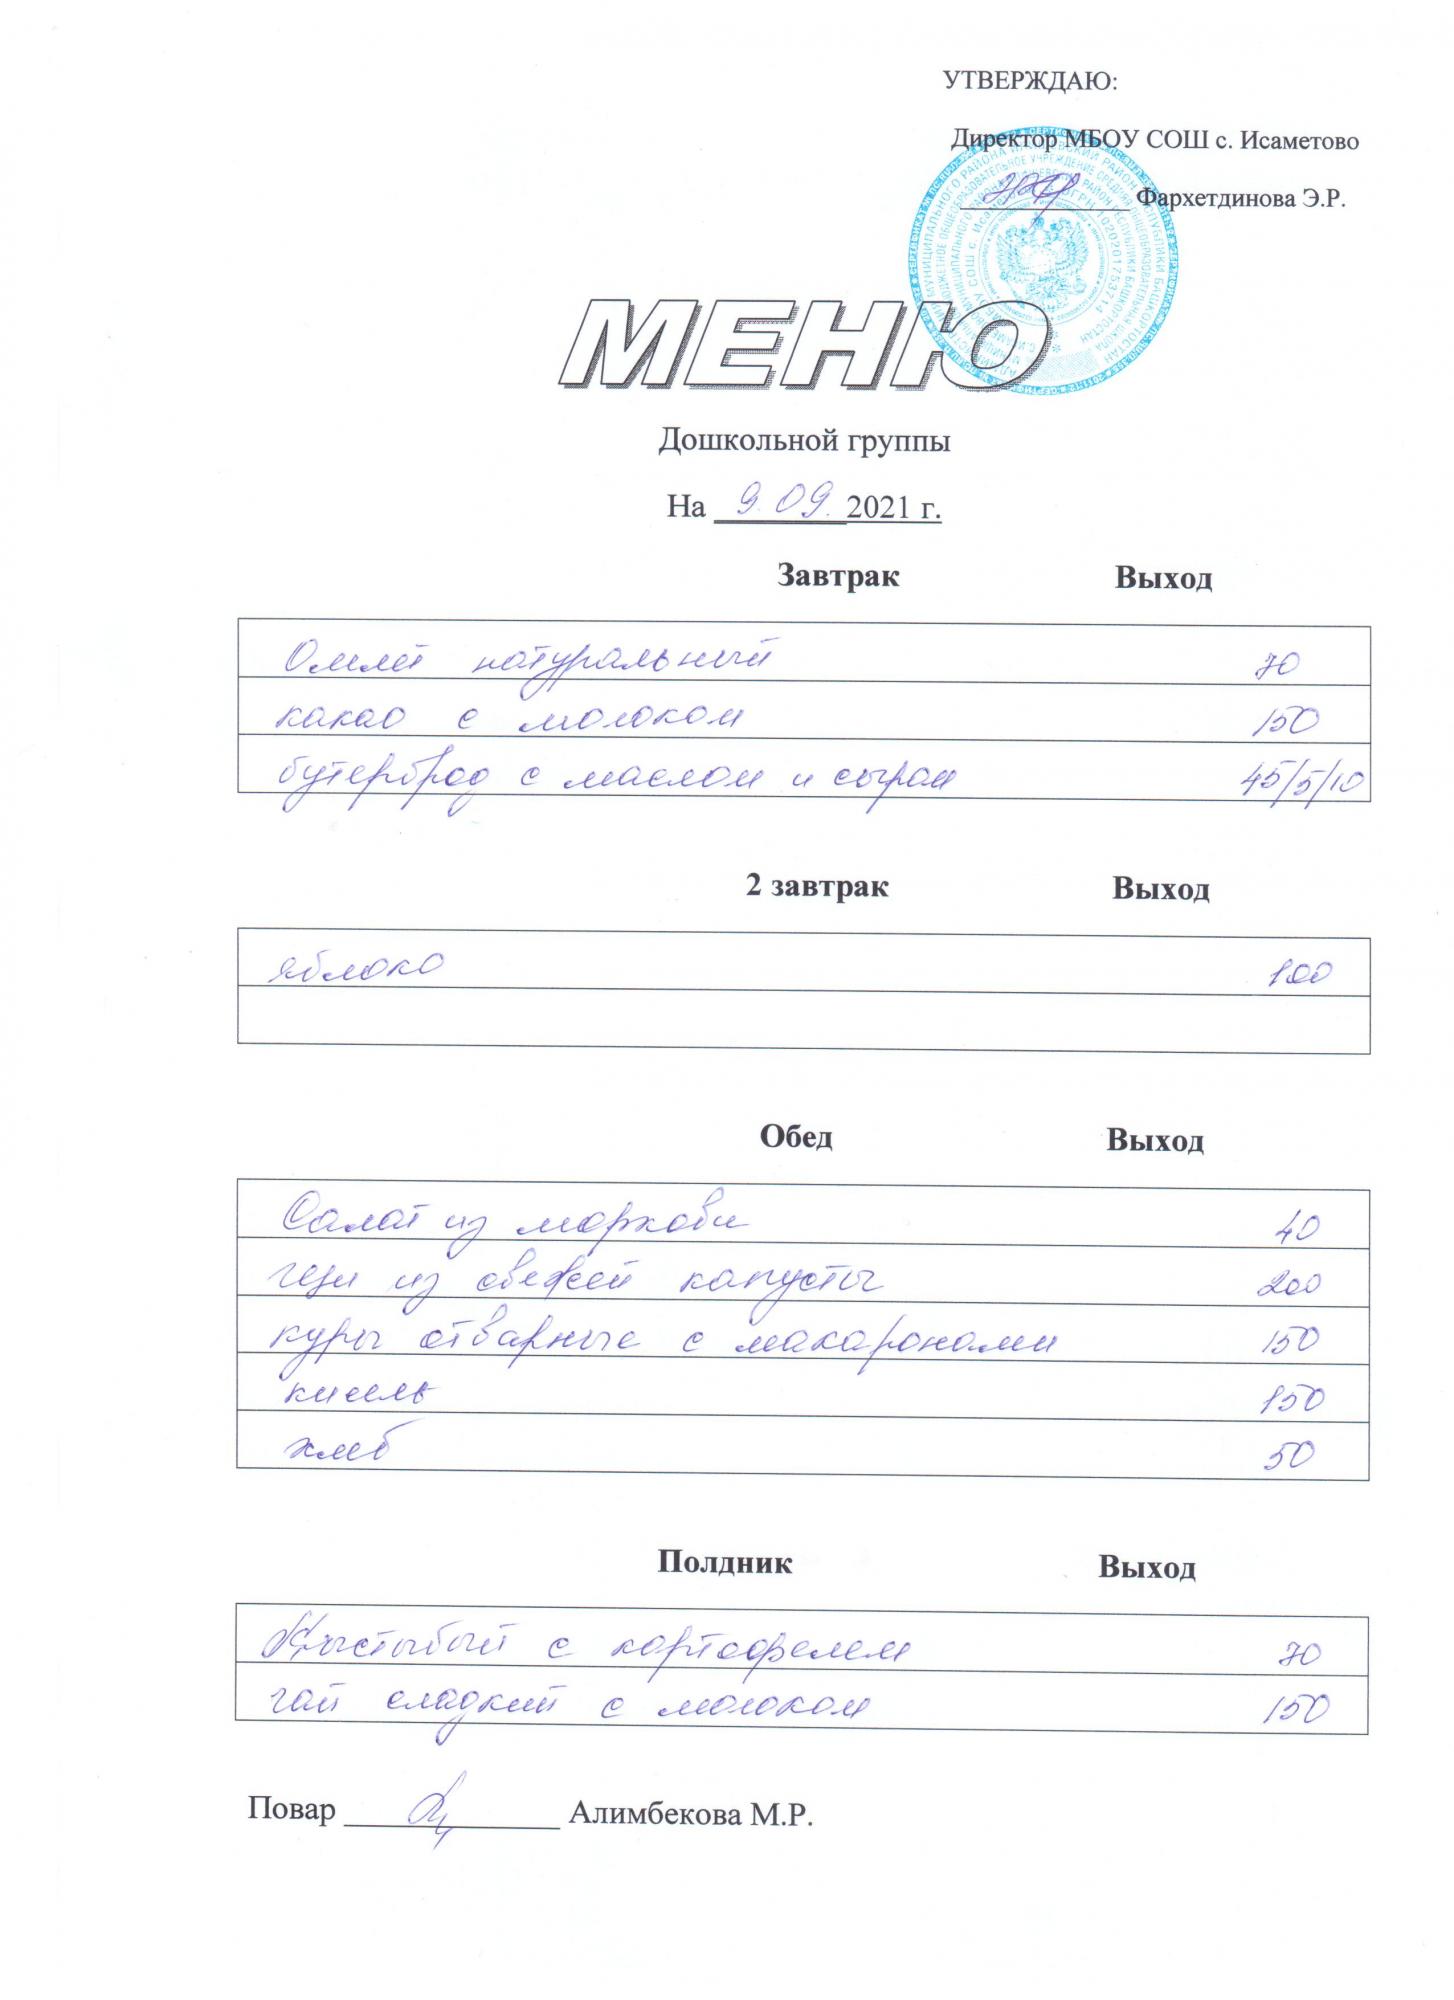 УТВЕРЖДАЮ:
Директор МБОУ СОШ с. Исаметово
Фархетдинова Э.Р.
МЕНЮ
Дошкольной группы
На 9.09. 2021 г.
Завтрак Выход
Омлет натуральный 70
какао с молоком 150
бутерброд с маслом и сыром 45/5/10
2 завтрак Выход
яблоко 100
Обед Выход
Салат из моркови 40
щи из свежей капусты 200
куры отварные с макаронами 150
кисель 150
хлеб 50
Полдник Выход
Кыстыбый с картофелем 70
чай сладкий с молоком 150
Повар Алимбекова М.Р.